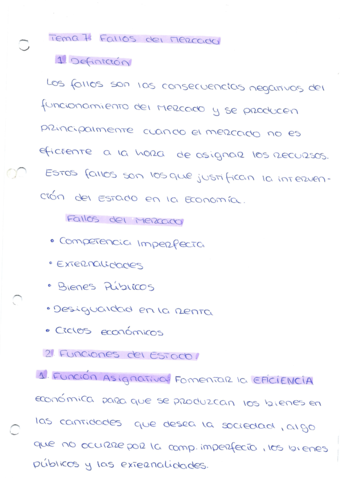 Tema 7: Fallos del Mercado
1) Definición
Los fallos son las consecuencias negativas del
funcionamiento del Mercado y se producen
principalmente cuando el mercado no es
eficiente a la hora de asignar los recursos.
Estos fallos son los que justifican la interven-
ción del estado en la economía.
Fallos del Mercado
• Competencia Imperfecta
• Externalidades
• Bienes Públicos
• Desigualdad en la renta
• Ciclos económicos
2) Funciones del Estado/
1) Función Asignativa/ Fomentar la EFICIENCIA
económica para que se produzcan los bienes en
las cantidades que desea la sociedad, algo
que no ocurre por la comp. imperfecta, los bienes
públicos y las externalidades.